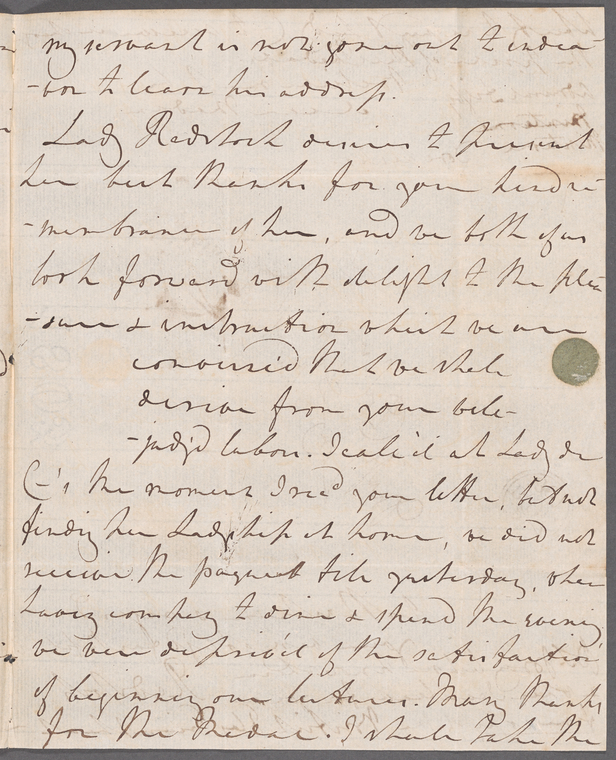 my servant is not gone out to endea-
-vor to learn his address.
Lady Radstock desires to present
her best thanks for your kind re-
-membrance of her, and we both of us
look forward with delight to the plea-
-sure & instruction which we are
convinced that we shall
derive from your well-
-judg'd labor. I call'd at Lady de
C–'s the moment I rec'd your letter, but not
finding her Ladyship at home, we did not
receive the paquet till yesterday, when
having company to dine & spend the evening
we were depriv'd of the satisfaction
of beginning our lectures. Many thanks
for the Medal. I shall take the